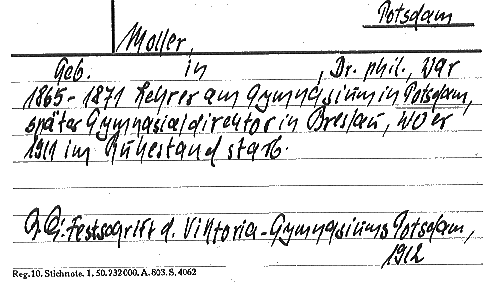 Potsdam
Moller,
Geb. in , Dr. phil., war
1865-1871 Lehrer am Gymnasium in Potsdam,
später Gymnasialdirektor in Breslau, wo er
1911 im Ruhestand starb.
Festschrift d. Viktoria-Gymnasiums Potsdam,
1912
Reg. 10. Stichnote. 1. 50. 232000. A. 803. S. 4062